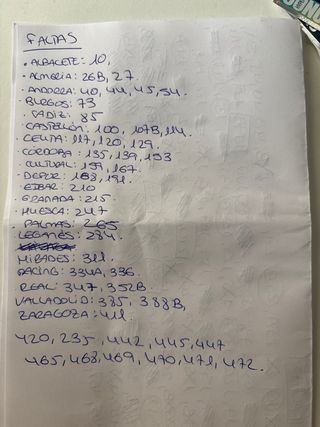 FALTAS
· ALBACETE: 10,
· ALMERÍA: 26B, 27.
· ANDORRA: 40, 44, 45, 54.
· BURGOS: 73
· CADIZ: 85
CASTELLÓN: 100, 107B, 114.
· CEUTA: 117, 120, 129.
· CORDOBA: 135, 139, 153
· CULTURAL: 159, 167.
· DEPOR: 183, 191.
· EIBAR: 210
· GRANADA: 215
· HUESCA: 247
· PALMAS: 265
LEGANES: 284.
MIRADES: 311.
RACING: 334A, 336.
REAL: 347, 352B.
VALLADOLID: 385, 388B,
ZARAGOZA: 411.
420, 235, 442, 445, 447
465, 468, 469, 470, 471, 472.